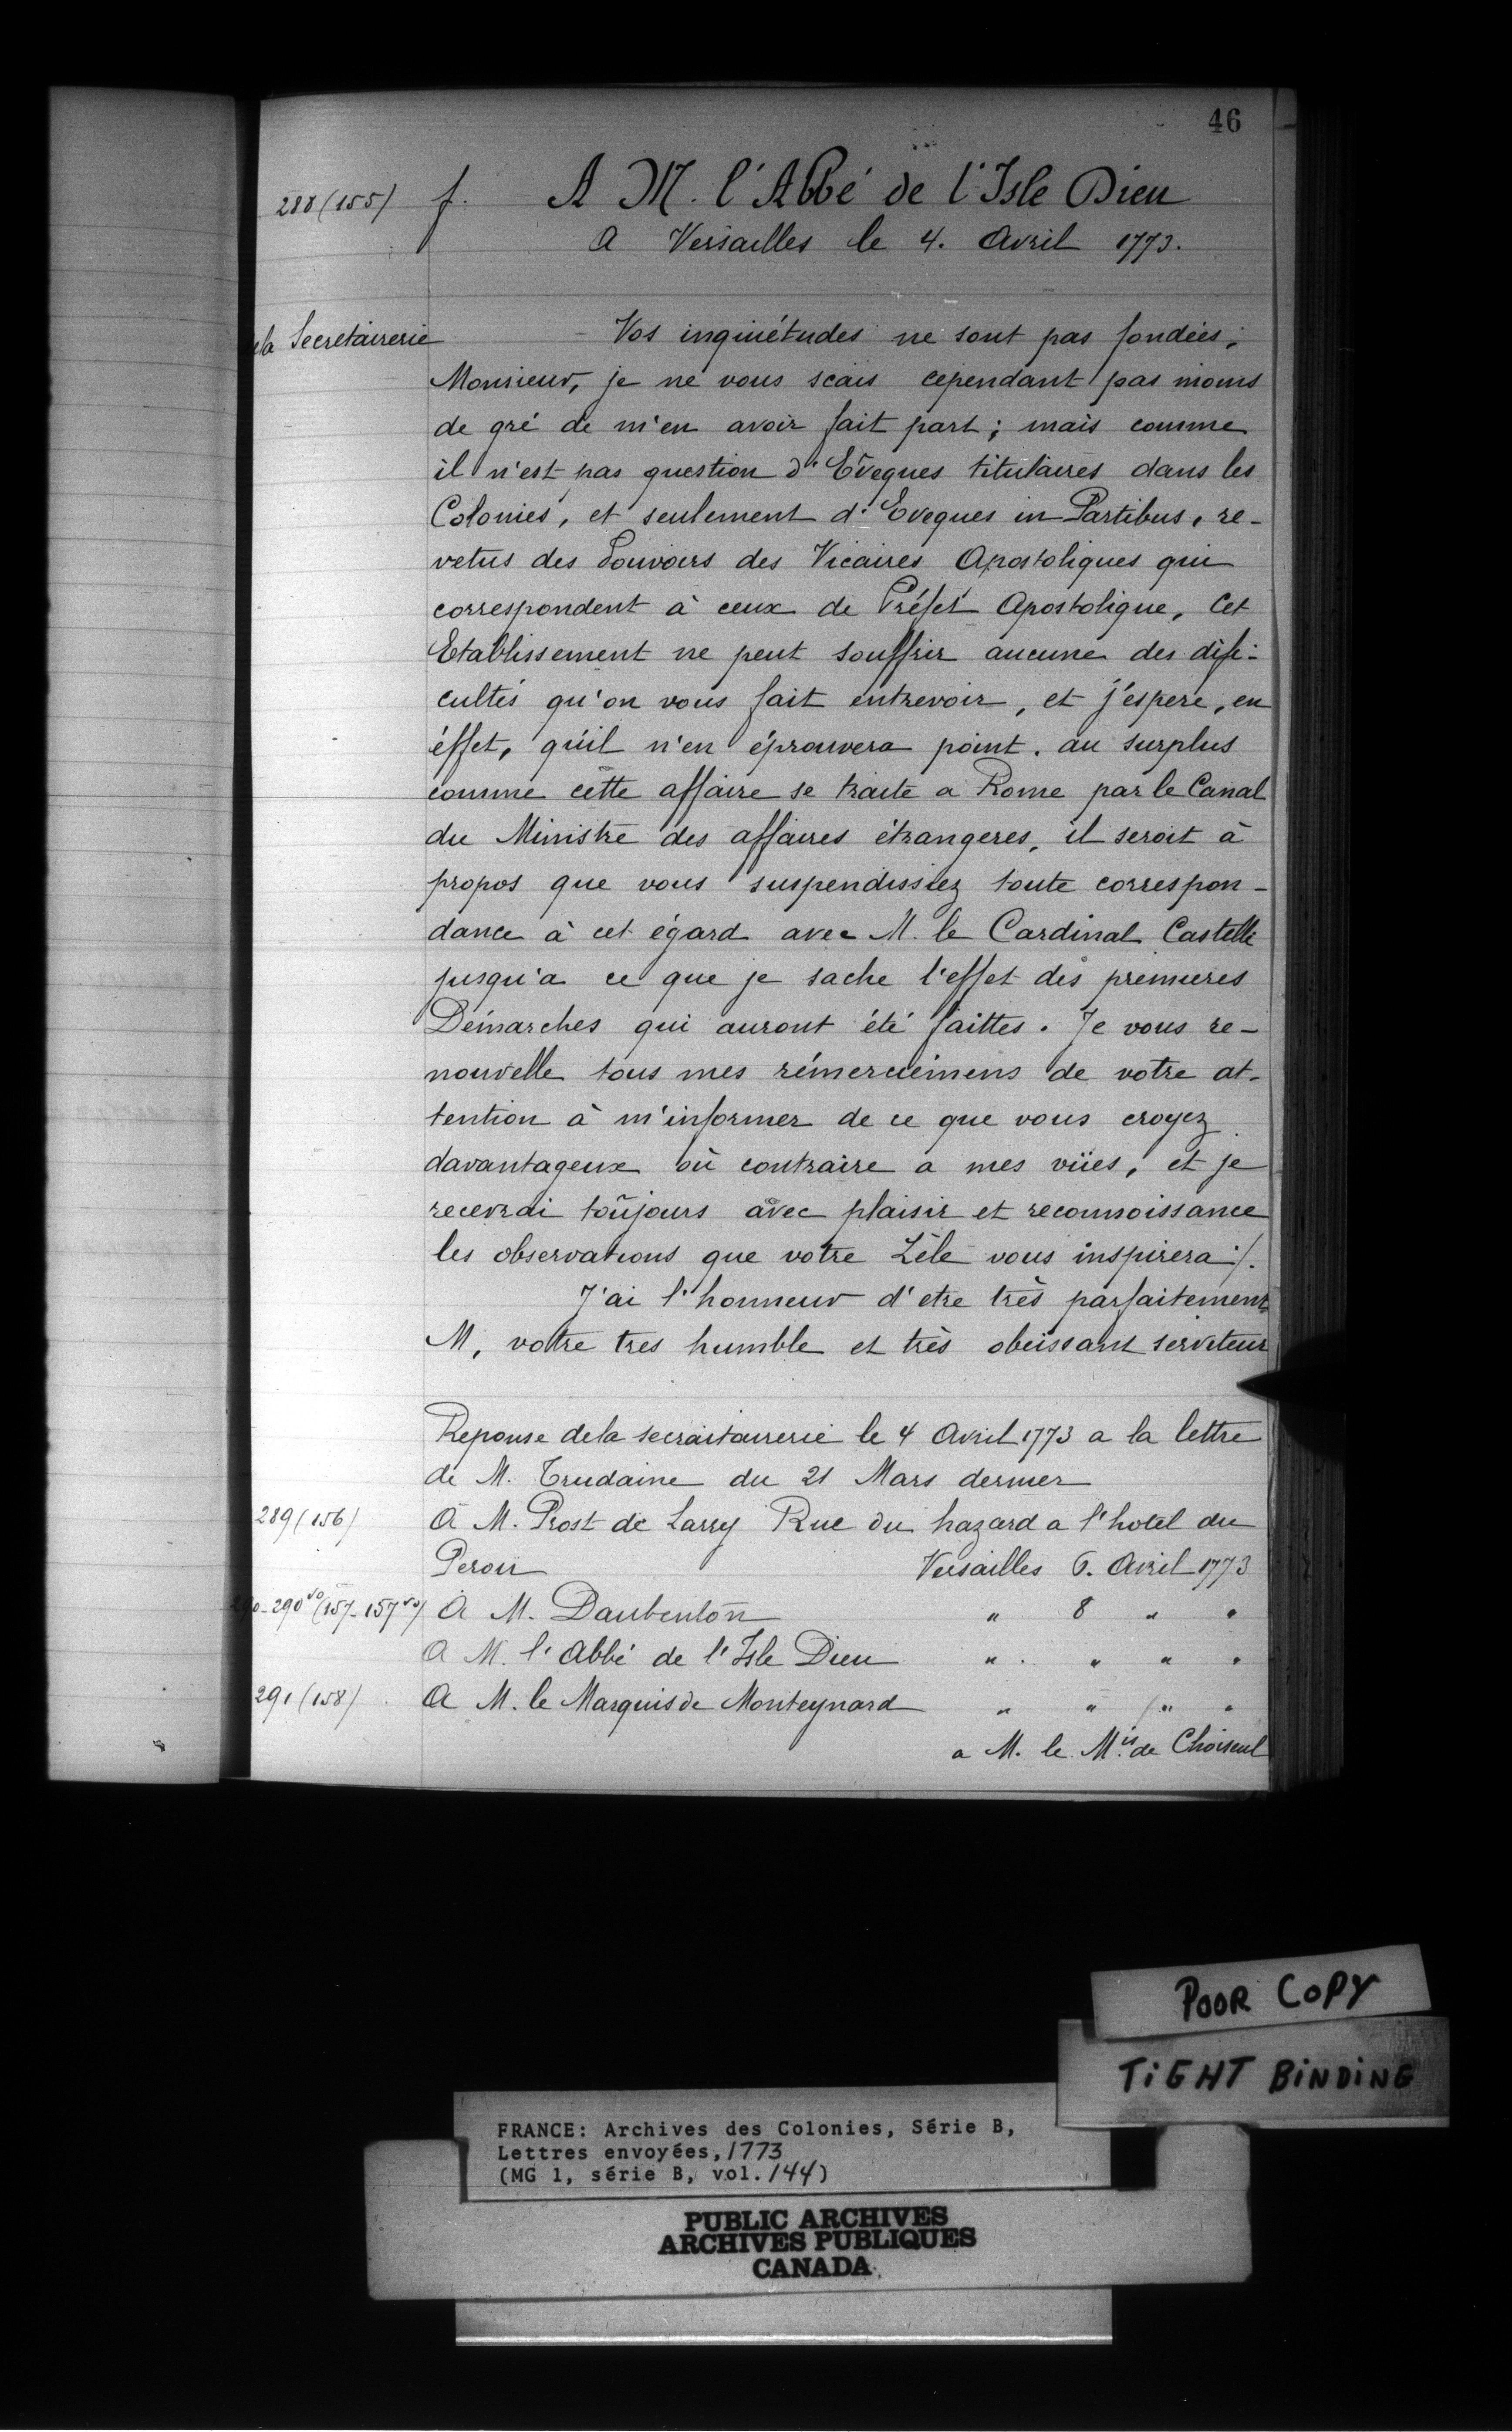 46
288 (155) f. A M. l'Abbé de l'Isle Dieu
A Versailles le 4. Avril 1773.
de la Secretairerie
Vos inquiétudes ne sont pas fondées,
Monsieur, je ne vous scais cependant pas moins
de gré de m'en avoir fait part; mais comme
il n'est pas question d'Evêques titulaires dans les
Colonies, et seulement d'Eveques in Partibus, re-
vetus des Pouvoirs des Vicaires Apostoliques qui
correspondent à ceux de Préfet Apostolique, Cet
Etablissement ne peut souffrir aucune des difi-
cultés qu'on vous fait entrevoir, et j'espere, en
éffet, qu'il n'en éprouvera point. au surplus
comme cette affaire se traite a Rome par le Canal
du Ministre des affaires étrangeres, il seroit à
propos que vous suspendissiez toute correspon-
dance à cet égard avec M. le Cardinal Castelli
jusqu'a ce que je sache l'effet des premieres
Démarches qui auront été faittes. Je vous re-
nouvelle tous mes rémerciémens de votre at-
tention à m'informer de ce que vous croyez
davantageux où contraire a mes vües, et je
recevrai toûjours avec plaisir et reconnoissance
les observations que votre Zèle vous inspirera ./.
J'ai l'honneur d'etre très parfaitement
M, votre tres humble et très obeissant serviteur
Reponse de la secraitairerie le 4 Avril 1773 a la lettre
de M. Trudaine du 21 Mars dernier
289 (156) A M. Prost de Larry Rue du hazard a l'hotel du
Perou Versailles 6. Avril 1773
290-290vo (157-157vo) A M. Daubenton " 8 " "
A M. l'Abbé de l'Isle Dieu " " " "
291 (158) A M. le Marquis de Monteynard " " " "
a M. le Mis de Choiseul
POOR COPY
TIGHT BINDING
FRANCE: Archives des Colonies, Série B,
Lettres envoyées, 1773
(MG 1, série B, vol. 144)
PUBLIC ARCHIVES
ARCHIVES PUBLIQUES
CANADA